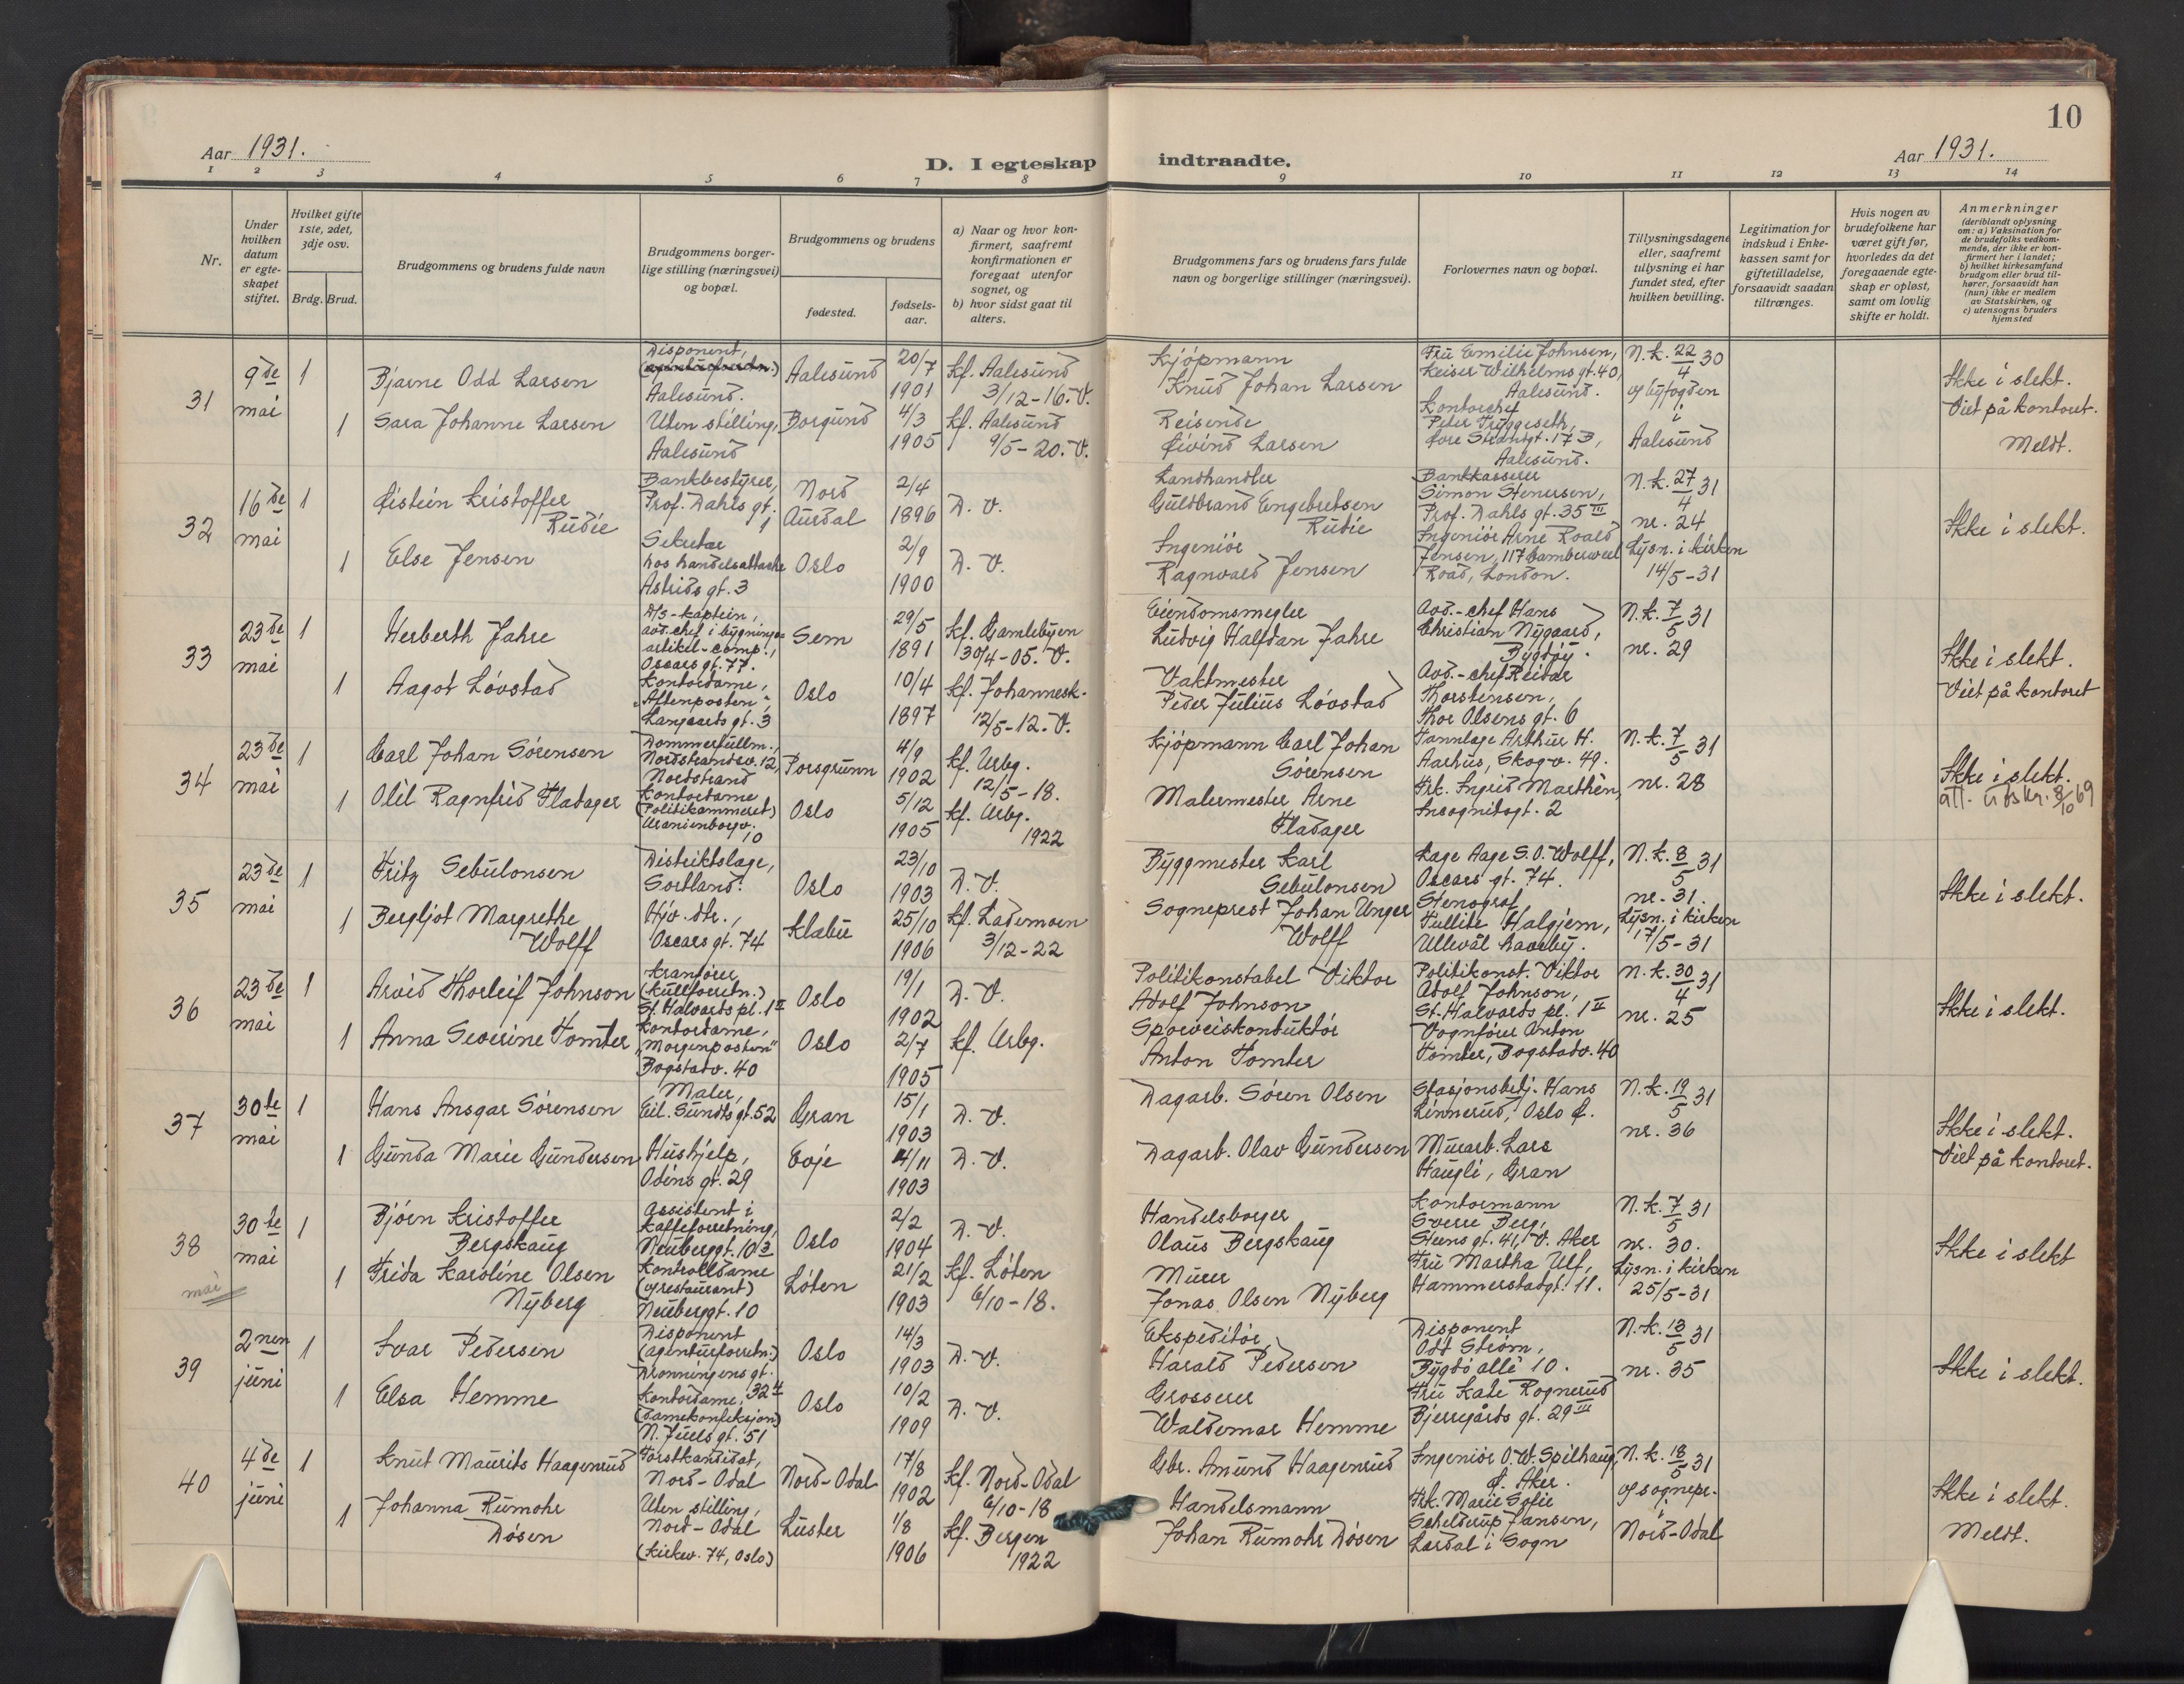 10
Aar 1931.
D. I egteskap indtraadte.
Aar 1931.
1 2 3 4 5 6 7 8 9 10 11 12 13 14
Nr.
Under hvilken datum er egte-skapet stiftet.
Hvilket gifte 1ste, 2det, 3dje osv.
Brdg. Brud.
Brudgommens og brudens fulde navn
Brudgommens borger-lige stilling (næringsvei) og bopæl.
Brudgommens og brudens
fødested.
fødsels-aar.
a) Naar og hvor kon-firmert, saafremt konfirmationen er foregaat utenfor sognet, og
b) hvor sidst gaat til alters.
Brudgommens fars og brudens fars fulde navn og borgerlige stillinger (næringsvei).
Forlovernes navn og bopæl.
Tillysningsdagene eller, saafremt tillysning ei har fundet sted, efter hvilken bevilling.
Legitimation for indskud i Enke-kassen samt for giftetilladelse, forsaavidt saadan tiltrænges.
Hvis nogen av brudefolkene har været gift før, hvorledes da det foregaaende egte-skap er opløst, samt om lovlig skifte er holdt.
Anmerkninger
(deriblandt oplysning om: a) Vaksination for de brudefolks vedkom-mende, der ikke er kon-firmert her i landet; b) hvilket kirkesamfund brudgom eller brud til-hører, forsaavidt han (hun) ikke er medlem av Statskirken, og c) utensogns bruders hjemsted
31
9de mai
1
Bjarne Odd Larsen
Disponent,
(agenturforretn.)
Aalesund.
Aalesund
20/7 1901
kf. Aalesund
3/12-16. V.
Kjøpmann
Knud Johan Larsen
Fru Emilie Johnsen,
Keiser Wilhelms gt. 40,
Aalesund.
N.k. 22/4 30
af byfogden
i
Aalesund
Ikke i slekt.
Viet på kontoret.
Meldt.
1
Sara Johanne Larsen
Uten stilling,
Aalesund
Borgund
4/3 1905
kf. Aalesund
9/5-20. V.
Reisende
Eivind Larsen
Kontorchef
Peter Tryggeseth,
Øvre Strandgt. 173,
Aalesund.
32
16de mai
1
Øistein Kristoffer
Rudie
Bankbestyrer,
Prof. Dahls gt.
1
Nord
Aurdal
2/4 1896
D. V.
Landhandler
Guldbrand Engebretsen
Rudie
Bankkasserer
Simon Stenersen,
Prof. Dahls gt. 35 III
N.k. 27/4 31
nr. 24
Lysn. i kirken
14/5-31
Ikke i slekt.
1
Else Jensen
Sekretær
hos handelsattaché
Astrids gt. 3
Oslo
2/9 1900
D. V.
Ingeniør
Ragnvald Jensen
Ingeniør Arne Roald
Jensen, 117 Camberwell
Road, London.
33
23de mai
1
Herberth Jahre
D/S-kaptein,
avd.chef i bygnings-
artikel-comp.,
Oscars gt. 77.
Sem
29/5 1891
kf. Gamlebyen
30/4-05. V.
Eiendomsmegler
Ludvig Halfdan Jahre
Avd.-chef Hans
Christian Nygaard,
Bygdøy.
N.k. 7/5 31
nr. 29
Ikke i slekt.
Viet på kontoret
1
Aagot Løvstad
Kontordame,
"Aftenposten",
Langaards gt. 3
Oslo
10/4 1897
kf. Johannesk.
12/5-12. V.
Vaktmester
Peder Julius Løvstad
Avd.-chef Reidar
Thorstensen,
Thor Olsens gt. 6
34
23de mai
1
Carl Johan Sørensen
Dommerfullm.,
Nordstrandsv. 12,
Nordstrand
Porsgrunn
4/9 1902
kf. Urbg.
12/5-18.
Kjøpmann Carl Johan
Sørensen
Tannlæge Arthur H.
Aarhus, Skogv. 49.
N.k. 7/5 31
nr. 28
Ikke i slekt.
att. utskr. 8/10 69
1
Olil Ragnfrid Fladager
Kontordame
(Politikammeret)
Uranienborgv.
10
Oslo
5/12 1905
kf. Urbg.
1922
Malermester Arne
Fladager
Frk. Ingrid Marthén,
Incognitogt. 2
35
23de mai
1
Fritz Sebulonsen
Distriktslæge,
Sortland.
Oslo
23/10 1903
D. V.
Byggmester Karl
Sebulonsen
Læge Aage S.O. Wolff,
Oscars gt. 74.
N.k. 8/5 31
nr. 31.
Lysn. i kirken
17/5-31
Ikke i slekt.
1
Bergljot Margrethe
Wolff
Hjv. dtr.,
Oscars gt. 74
Klæbu
25/10 1906
kf. Lademoen
3/12-22
Sogneprest Johan Unger
Wolff
Stenograf
Tullik Halgjem,
Ullevål haveby.
36
23de mai
1
Arvid Thorleif Johnson
Kranfører
(kullforretn.)
St. Halvards pl. 1 II
Oslo
19/1 1902
D. V.
Politikonstabel Viktor
Adolf Johnson
Politikonst. Viktor
Adolf Johnson,
St. Halvards pl. 1 II
N.k. 30/4 31
nr. 25
Ikke i slekt.
1
Anna Severine Tomter
Kontordame,
"Morgenposten"
Bogstadv. 40
Oslo
2/7 1905
kf. Urbg.
Sporveiskonduktør
Anton Tomter
Vognfører Anton
Tomter, Bogstadv. 40
37
30te mai
1
Hans Ansgar Sørensen
Maler,
Eil. Sundts gt. 52
Gran
15/1 1903
D. V.
Dagarb. Søren Olsen
Stasjonsbetj. Hans
Linnerud, Oslo Ø.
N.k. 19/5 31
nr. 36
Ikke i slekt.
Viet på kontoret.
1
Gunda Marie Gundersen
Hushjelp,
Odins gt. 29
Evje
4/11 1903
D. V.
Dagarb. Olav Gundersen
Murarb. Lars
Haugli, Gran
38
30te mai
1
Bjørn Kristoffer
Bergskaug
Assistent i
kaffeforretning,
Neuberggt. 10 3
Oslo
2/2 1904
D. V.
Handelsborger
Olaus Bergskaug
Kontormann
Sverre Berg,
Steens gt. 41, V. Aker
N.k. 7/5 31
nr. 30.
Lysn. i kirken
25/5-31
Ikke i slekt
mai
1
Frida Karoline Olsen
Nyberg
Kontrolldame
(restaurant)
Neuberggt. 10
Løten
21/2 1903
kf. Løten
6/10-18.
Murer
Jonas Olsen Nyberg
Fru Martha Ulf,
Hammerstadgt. 11.
39
2nen juni
1
Ivar Pedersen
Disponent
(agenturforretn.)
Dronningens gt.
32 4
Oslo
14/3 1903
D. V.
Ekspeditør
Harald Pedersen
Disponent
Odd Strøm,
Bygdø allé 10.
N.k. 13/5 31
nr. 35
Ikke i slekt.
1
Elsa Hemme
Kontordame,
(damekonfeksjon)
N. Juels gt. 51
Oslo
10/2 1909
D. V.
Grosserer
Waldemar Hemme
Fru Kate Rognerud
Bjerregårds gt. 29 III
40
4de juni
1
Knut Maurits Haagenrud
Forstkandidat,
Nord-Odal
Nord-Odal
17/8 1902
kf. Nord-Odal
6/10-18
Gbr. Amund Haagenrud
Ingeniør O.W. Spilhaug,
Ø. Aker.
N.k. 18/5 31
af sognepr.
i
Nord-Odal
Ikke i slekt.
Meldt.
1
Johanna Rumohr
Døsen
Uten stilling,
Nord-Odal
(Kirkev. 74, Oslo)
Luster
1/8 1906
kf. Bergen
1922
Handelsmann
Johan Rumohr Døsen
Frk. Marie Sofie
Schelderup Jansen,
Lærdal i Sogn